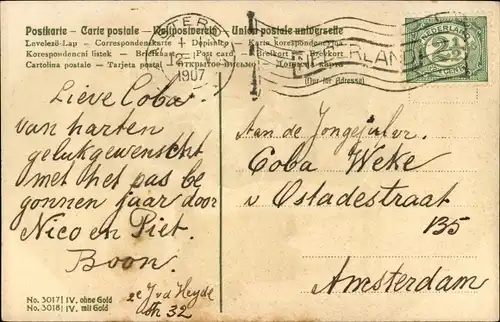 Postkarte – Carte postale – Weltpostverein – Union postale universelle
Levelező-Lap – Correspondenzkarte – Dopisnice – Karta korespondencyjna
Korespondenční listek – Briefkaart – Post card – Brefkort – Brevkort
Cartolina postale – Tarjeta postal – Открытое письмо
(Nur für Adresse)
1907
NEDERLAND
2½
CENT
Lieve Coba.
van harten
gelukgewenscht
met het pas be
gonnen jaar door
Nico en Piet.
Boon.
2e J v d Heyde
str 32
Aan de Jongejufvr.
Coba Weke
v Ostadestraat
135
Amsterdam
No. 3017 | IV. ohne Gold
No. 3018 | IV. mit Gold